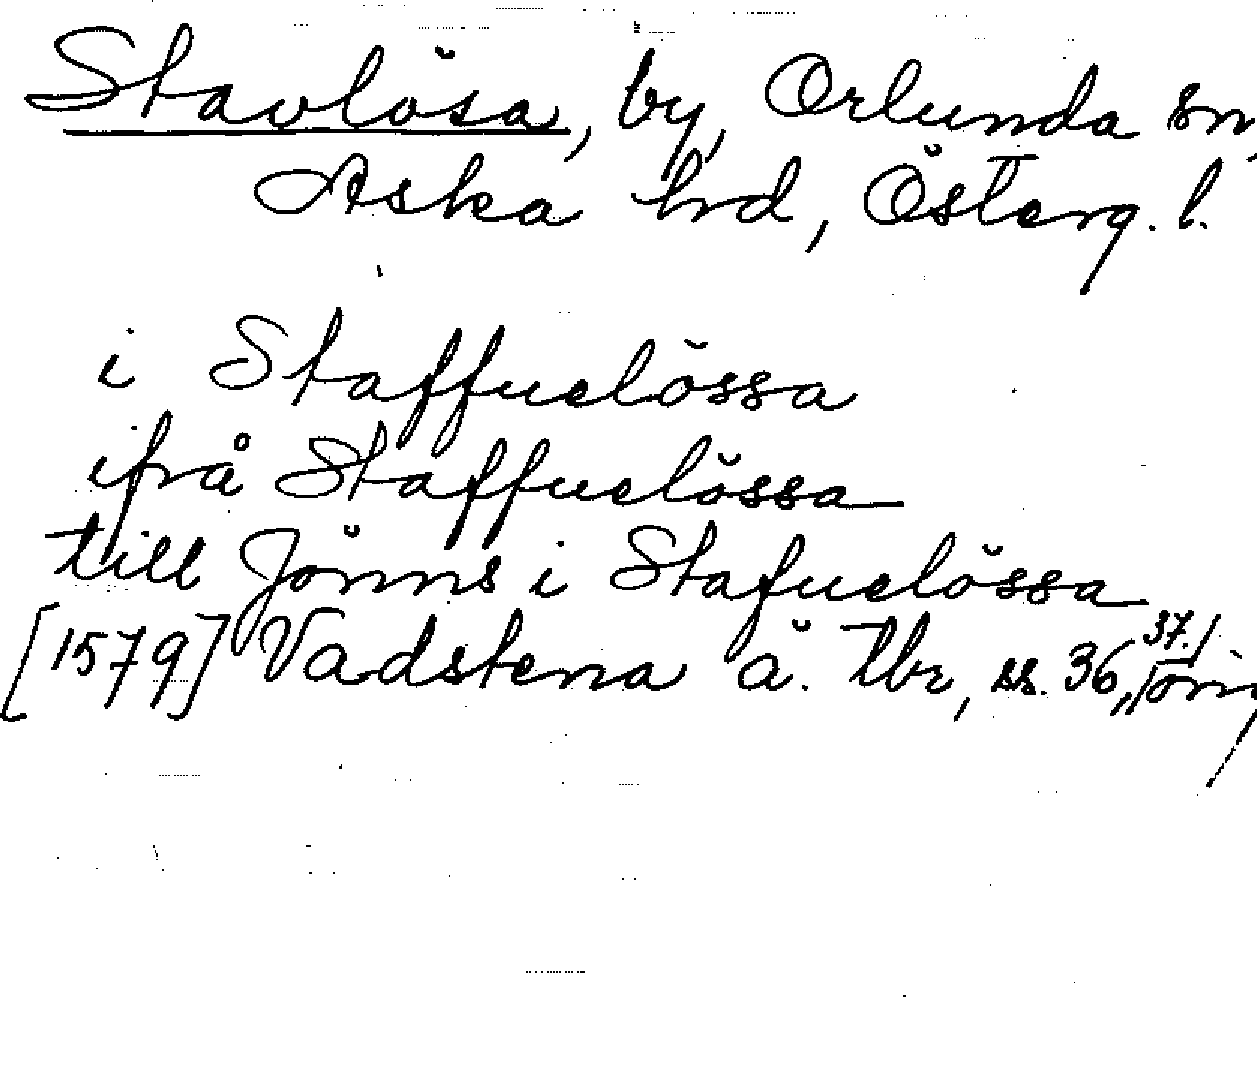 Stavlösa, by, Orlunda sn,
Aska hd, Österg. l.
i Staffuelössa
ifrå Staffuelössa
till Jönns i Stafuelössa
[1579] Vadstena ä. tbr, ss. 36, 37.